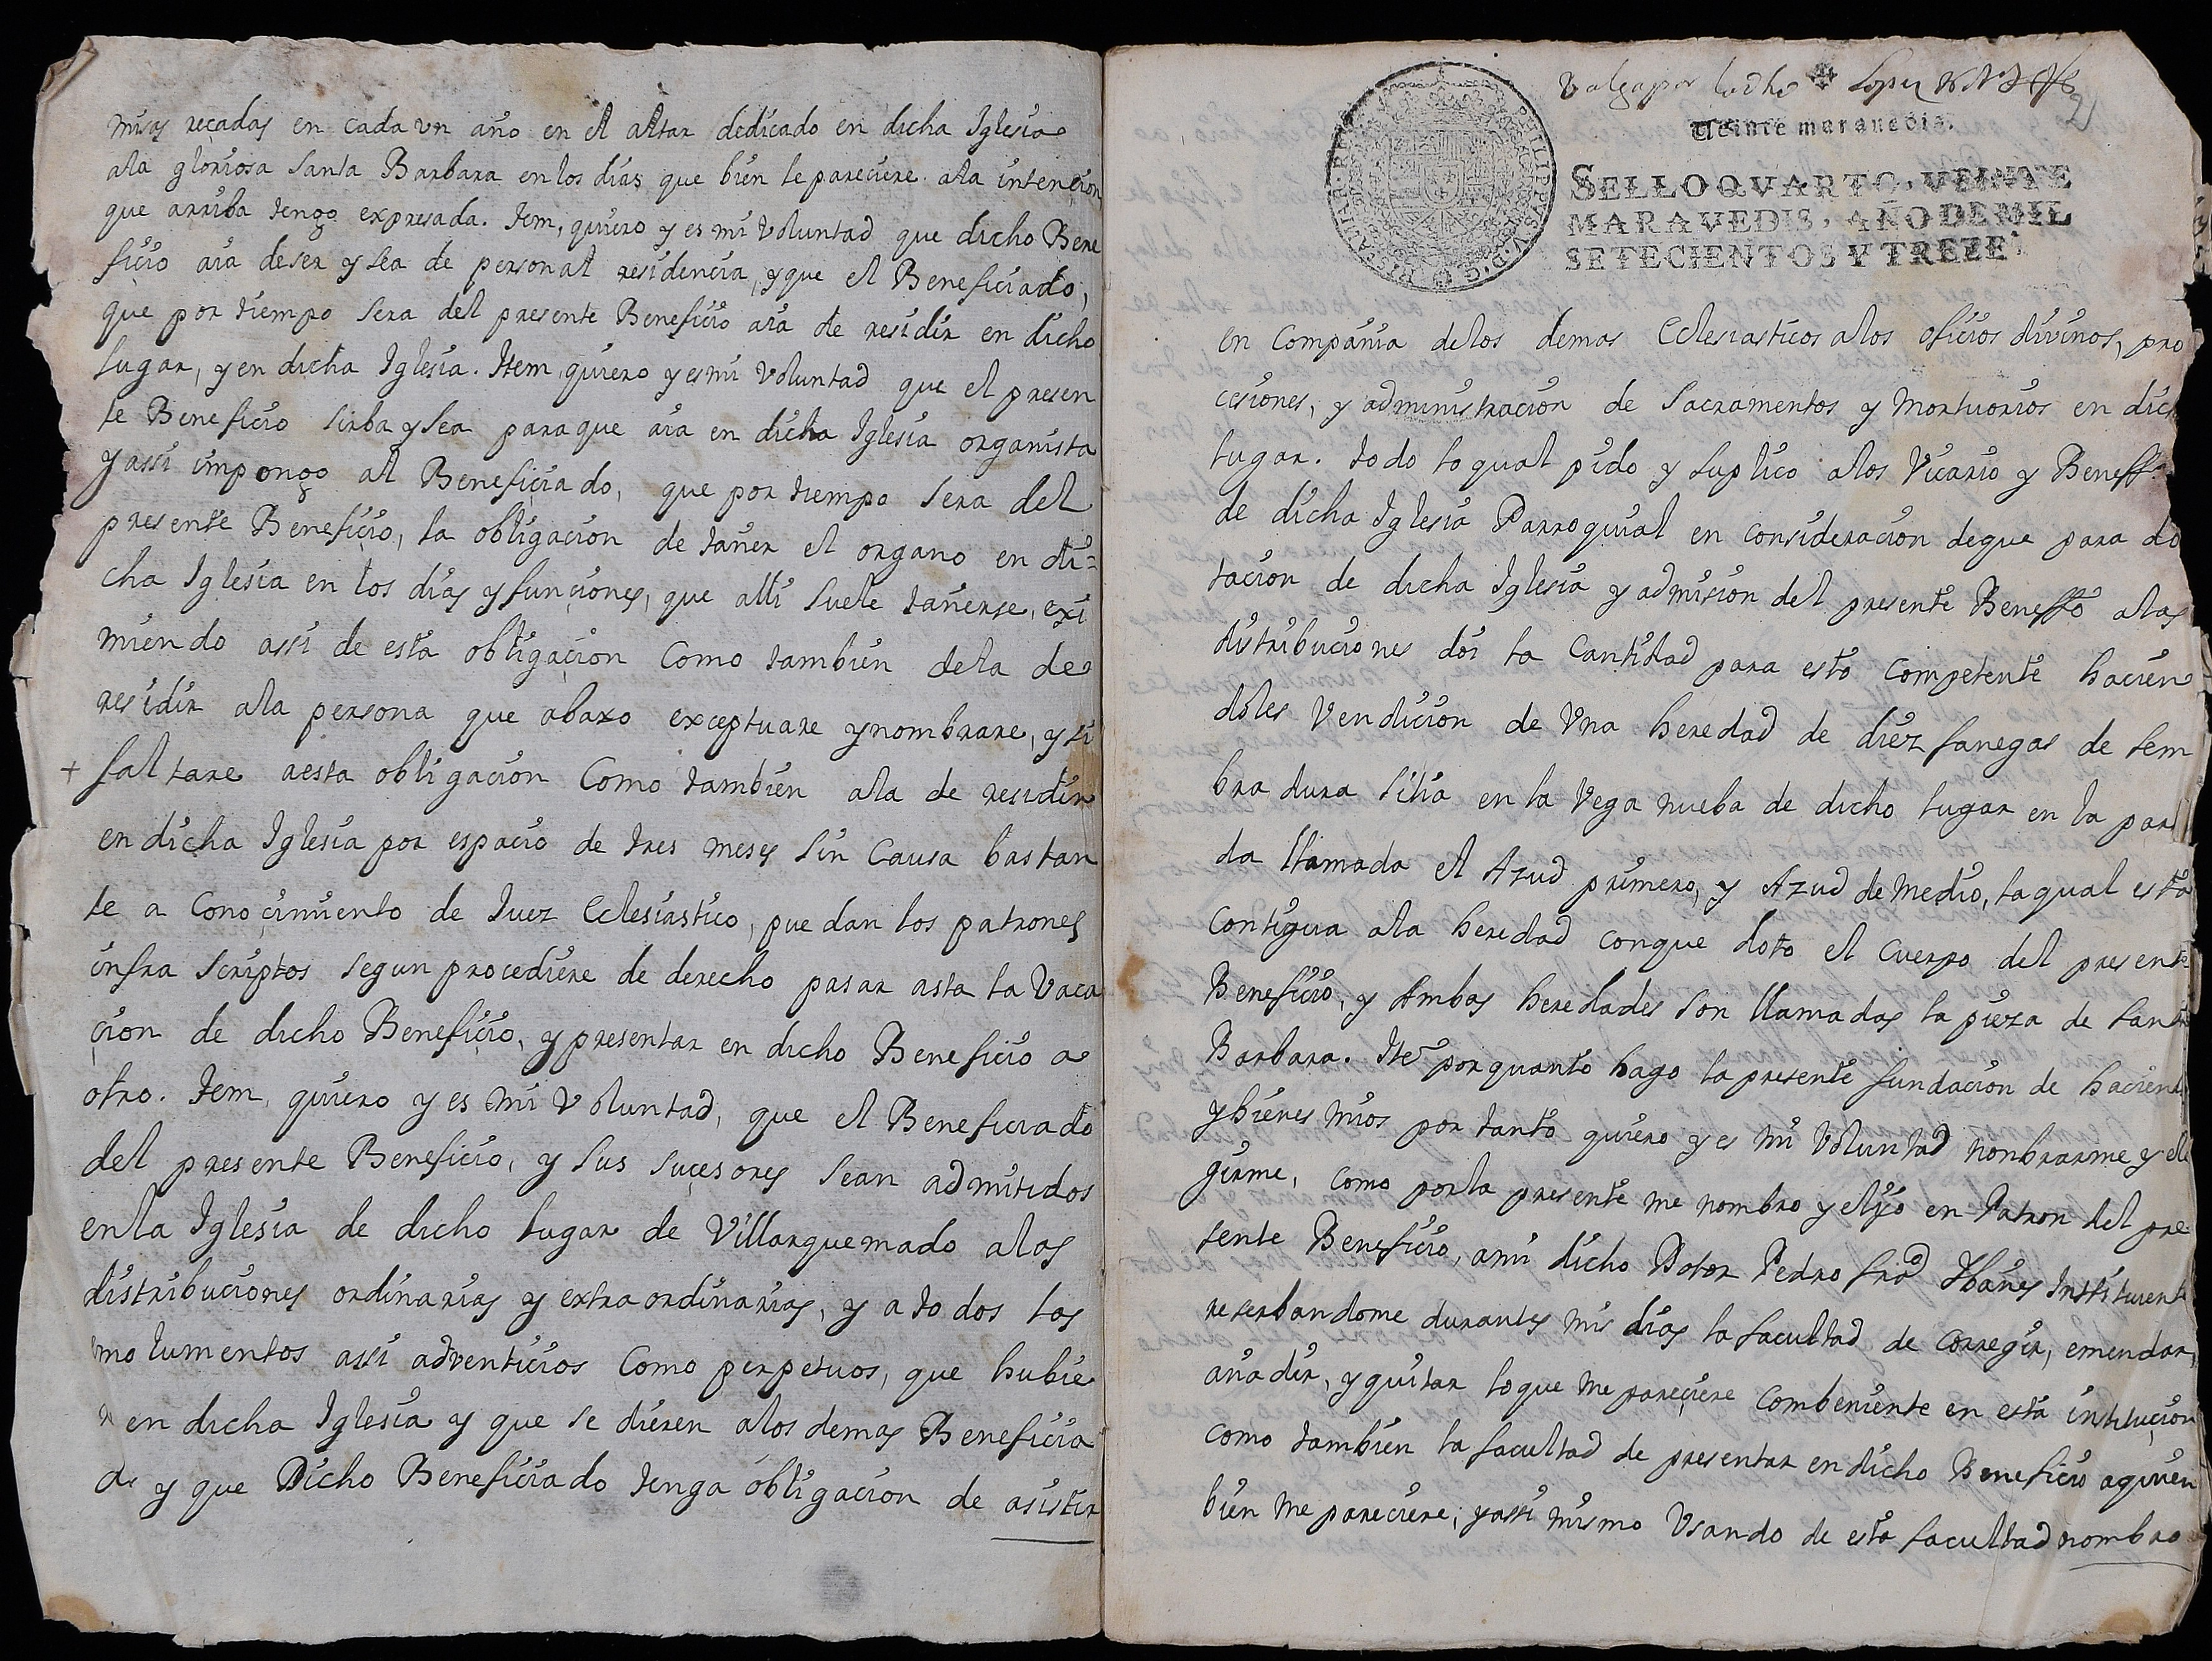 misas reçadas en cada vn año en el altar dedicado en dicha Iglesia
ala gloriosa Santa Barbara en los dias que bien le pareciere ala intencion
que arriba tengo expresada. Item, quiero y es mi Voluntad que dicho Bene
ficio aia de ser y sea de personal residencia, y que el Beneficiado,
que por tiempo sera del presente Beneficio aia de residir en dicho
lugar, y en dicha Iglesia. Item quiero y es mi Voluntad que el presen
te Beneficio sirba y sea para que aia en dicha Iglesia organista
y assi impongo al Beneficiado, que por tiempo sera del
presente Beneficio, la obligacion de tañer el organo en di=
cha Iglesia en los dias y funciones, que alli suele tañerse, exi
miendo assi de esta obligaçion como tambien dela de
residir ala persona que abaxo exceptuare y nombrare, y si
+ faltare aesta obligacion Como tambien ala de residir
en dicha Iglesia por espacio de tres meses sin Causa bastan
te a Conoçimiento de Iuez Eclesiastico, puedan los patrones
infra scriptos segun procediere de derecho pasar asta la Vaca
çion de dicho Benefiçio, y presentar en dicho Beneficio a
otro. Item, quiero y es mi Voluntad, que el Beneficiado
del presente Beneficio, y sus suçesores sean admitidos
en la Iglesia de dicho lugar de Villarquemado alas
distribuciones ordinarias y extraordinarias, y a todos los
molumentos assi adventicios Como perpetuos, que hubie
en dicha Iglesia y que se dieren alos demas Beneficia
y que Dicho Beneficiado tenga obligacion de asistir
Valga por
Lopez
2
Ueinte marauedis.
PHILIPPUS V D G
SELLO QVARTO, VEINTE
MARAVEDIS, AÑO DE MIL
SETECIENTOS Y TREZE
en Compañia delos demas Eclesiasticos alos oficios divinos, pro
cesiones, y administracion de Sacramentos y Mortuorios en dich
lugar. todo lo qual pido y suplico alos Vicario y Beneff.
de dicha Iglesia Parroquial en consideracion de que para do
tacion de dicha Iglesia y admision del presente Beneffo alas
distribuciones doi la Cantidad para esto competente hacien
doles Vendicion de Vna heredad de diez fanegas de sem
bradura sitia en la Vega nueba de dicho lugar en la parti
da llamada el Azud primero, y Azud de medio, la qual esta
contigua ala heredad conque doto el Cuerpo del presente
Beneficio, y Ambas heredades son llamadas la pieza de Santa
Barbara. Ite por quanto hago la presente fundacion de hacienda
y bienes mios por tanto quiero y es mi Voluntad nonbrarme y ele
girme, como por la presente me nombro y elijo en Patron del pre
sente Beneficio, ami dicho Dotor Pedro Ibañes Instituente
reserbandome durantes mis dias la facultad de corregir, emendar,
añadir, y quitar lo que me pareçiere combeniente en esta instituçion
como tambien la facultad de presentar en dicho Beneficio aquien
bien me pareciere; y assi mismo Vsando de esta facultad nombro